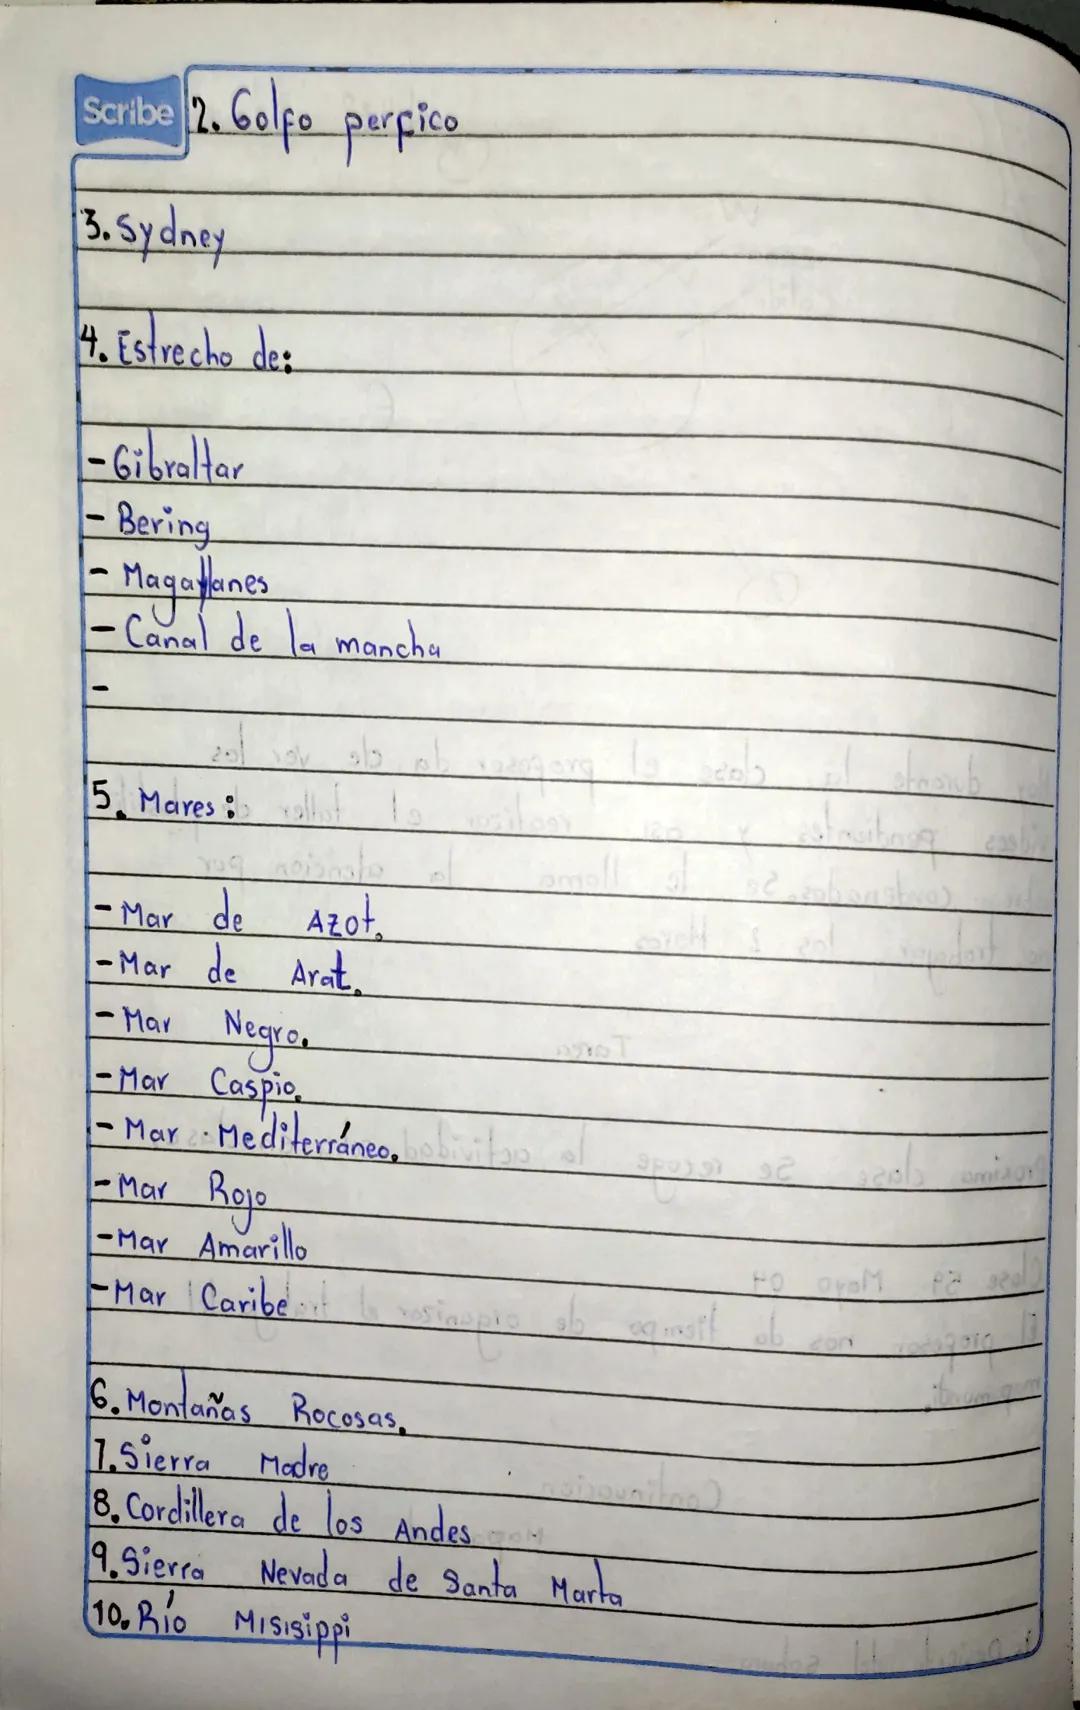 Scribe
2. Golfo perfico
3. Sydney
4. Estrecho de:
- Gibraltar
- Bering
- Magallanes
- Canal de la mancha
-
5. Mares:
- Mar de Azot.
- Mar de Arat.
- Mar Negro.
- Mar Caspio.
- Mar Mediterráneo.
- Mar Rojo
- Mar Amarillo
- Mar Caribe
6. Montañas Rocosas.
7. Sierra Madre
8. Cordillera de los Andes
9. Sierra Nevada de Santa Marta
10. Río Misisippi